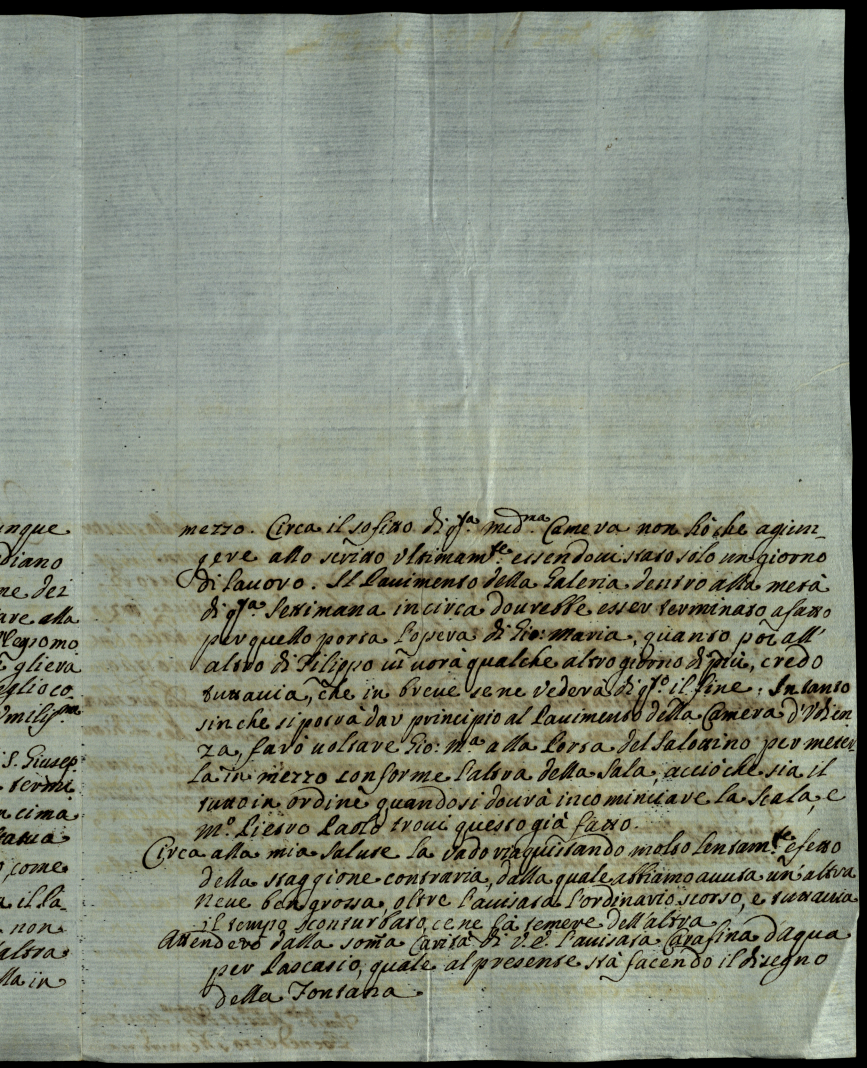 unque
diano
ne dei
are alla
glieva
eglio co
Vmiliss.mo
S. Giusep
termi
n cima
o, come
a il la-
non
l'altra
lla in
mezzo. Circa il sofitto di q.sta med.ma Camera non hò che agiun-
gere allo scritto vltimam.te essendoui stato solo un giorno
di lauoro. Il Pauimento della Galeria dentro alla metà
di q.sta Settimana in circa dourebbe esser terminato afatto
per quello porta l'opera di Gio: Maria, quanto poi all'
altro di Filippo ui uorà qualche altro giorno di più, credo
tuttauia, che in breue se ne vederà di q.sto il fine. Intanto
sin che si potrà dar principio al Pauimento della Camera d'Vdien
za, farò uoltare Gio: M.a alla Porta del Salottino per meter-
la in mezzo conforme l'altra della Sala, acciò che sia il
tutto in ordine quando si dourà incominciare la Scala, e
m.o Pietro Paolo troui questo già fatto.
Circa alla mia Salute la vado riaquistando molto lentam.te efetto
della staggione contraria, dalla quale abbiamo auuta un' altra
neue ben grossa, oltre l'auisata l'ordinario scorso, e tuttauia
il tempo sconturbato, ce ne fà temere dell'altra
Attenderò dalla soma Carità di V.E. l'auisata Carafina d'aqua
per Pascasio, quale al presente stà facendo il disegno
della Fontana